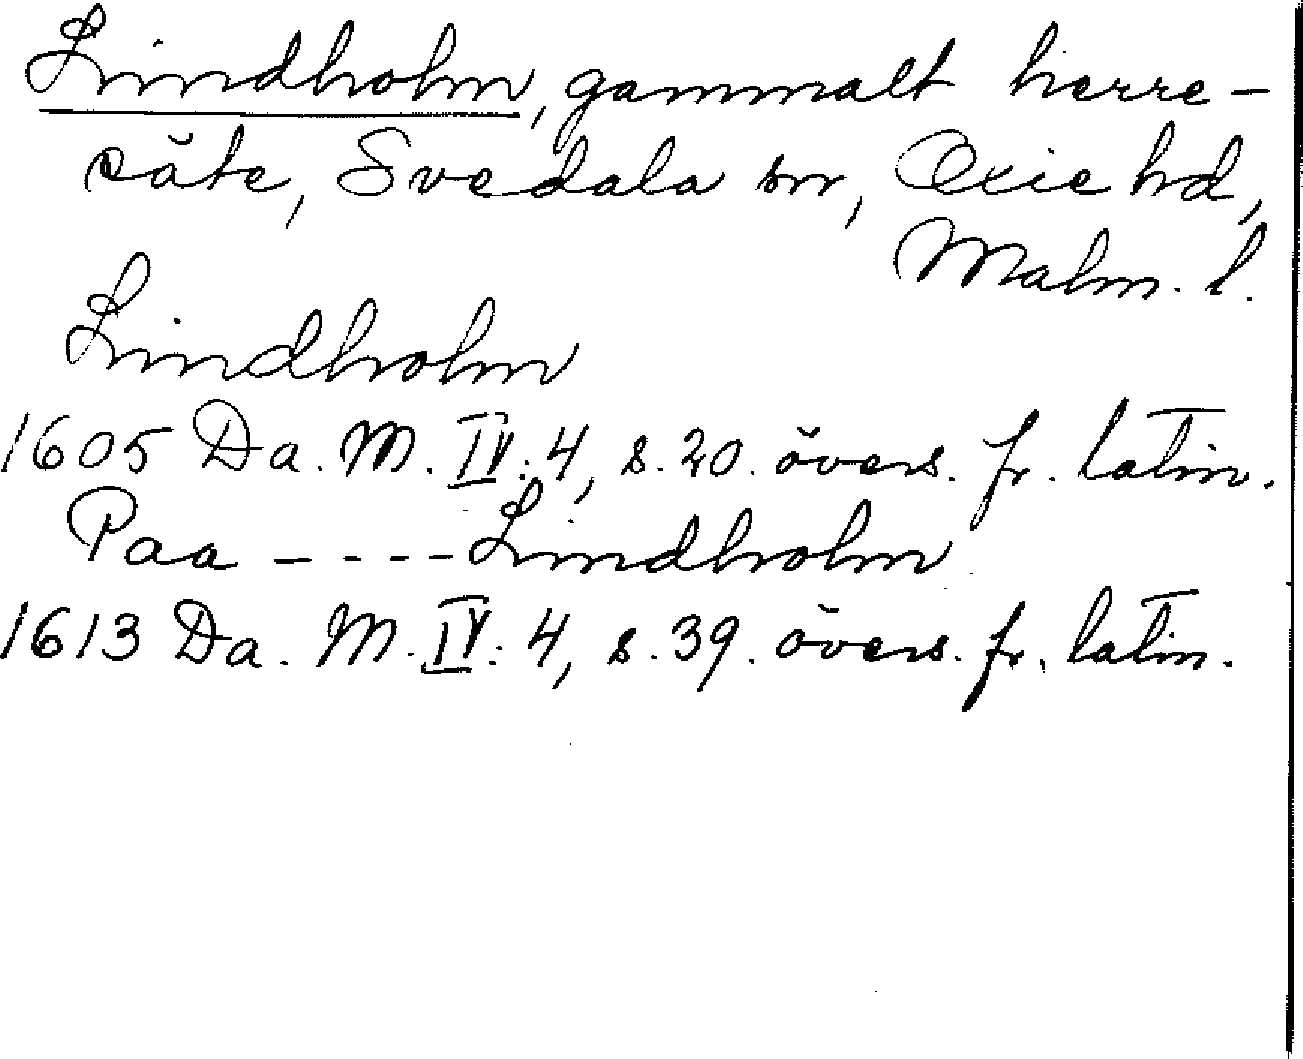 Lindholm, gammalt herre-
säte, Svedala sn, Oxie hd,
Malm. l.
Lindholm
1605 Da. M. IV: 4, s. 20. övers. fr. latin.
Paa - - - - Lindholm
1613 Da. M. IV: 4, s. 39. övers. fr. latin.